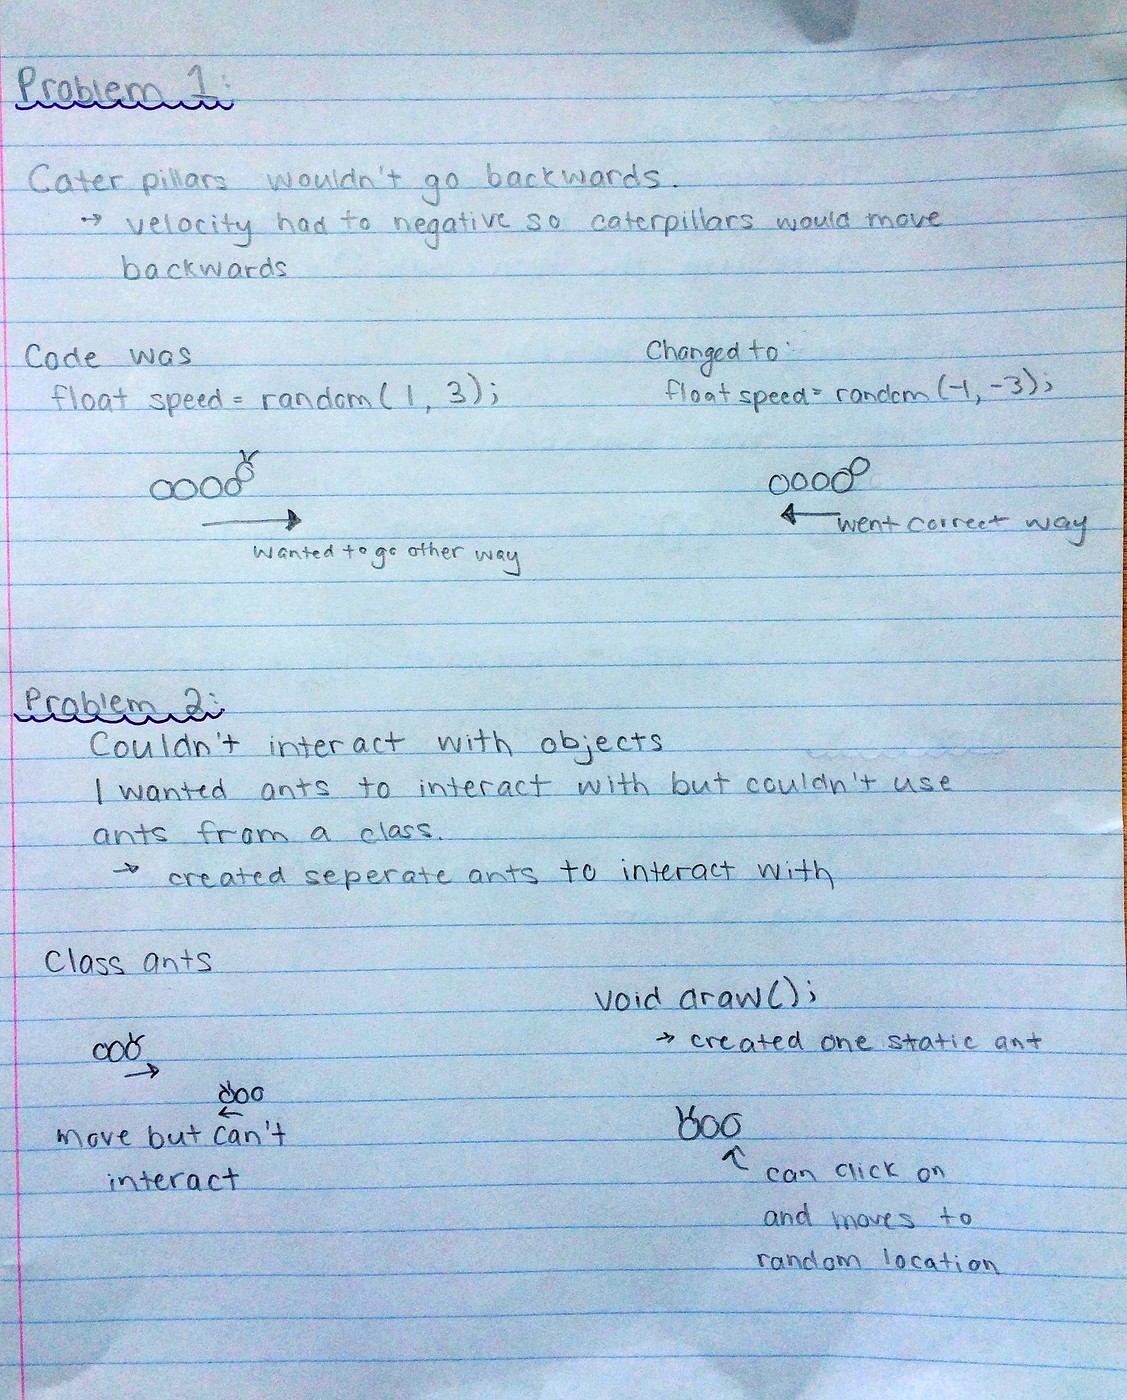 Problem 1:
Cater pillars wouldn't go backwards.
→ velocity had to negative so caterpillars would move
backwards
Code was
float speed = random(1, 3);
wanted to go other way
Changed to:
float speed = random(-1, -3);
went correct way
Problem 2:
Couldn't interact with objects
I wanted ants to interact with but couldn't use
ants from a class.
→ created seperate ants to interact with
Class ants
move but can't
interact
void draw();
→ created one static ant
can click on
and moves to
random location